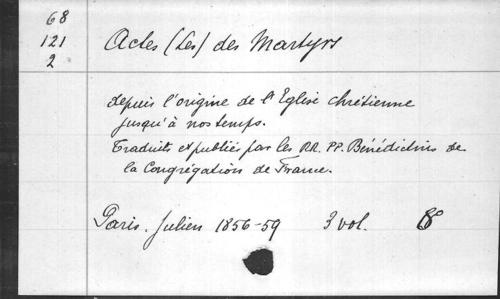 68
121
2
Actes (Les) des Martyrs
depuis l'origine de l'Eglise chrétienne
jusqu'à nos temps.
Traduits et publié par les RR. PP. Bénédictins de
la Congrégation de France.
Paris. Julien 1856-59 3 vol. 8°